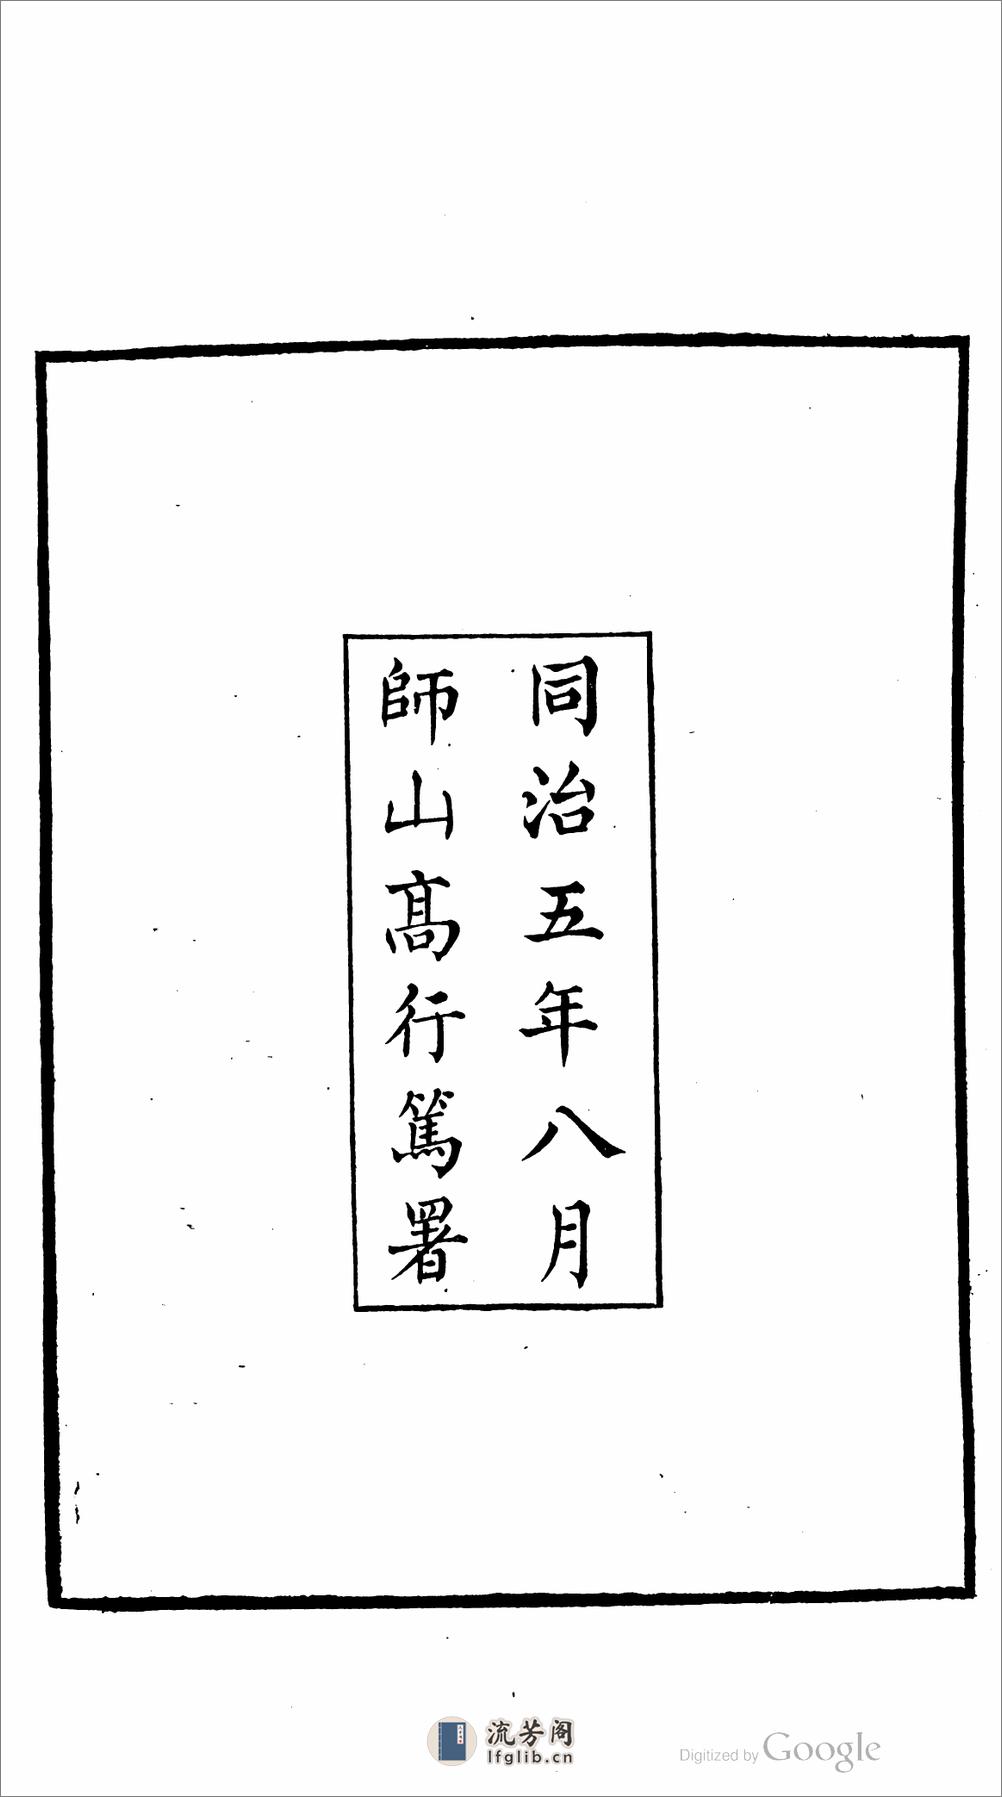 同治五年八月
師山髙行篤署
流芳阁
lfglib.cn
Digitized by Google